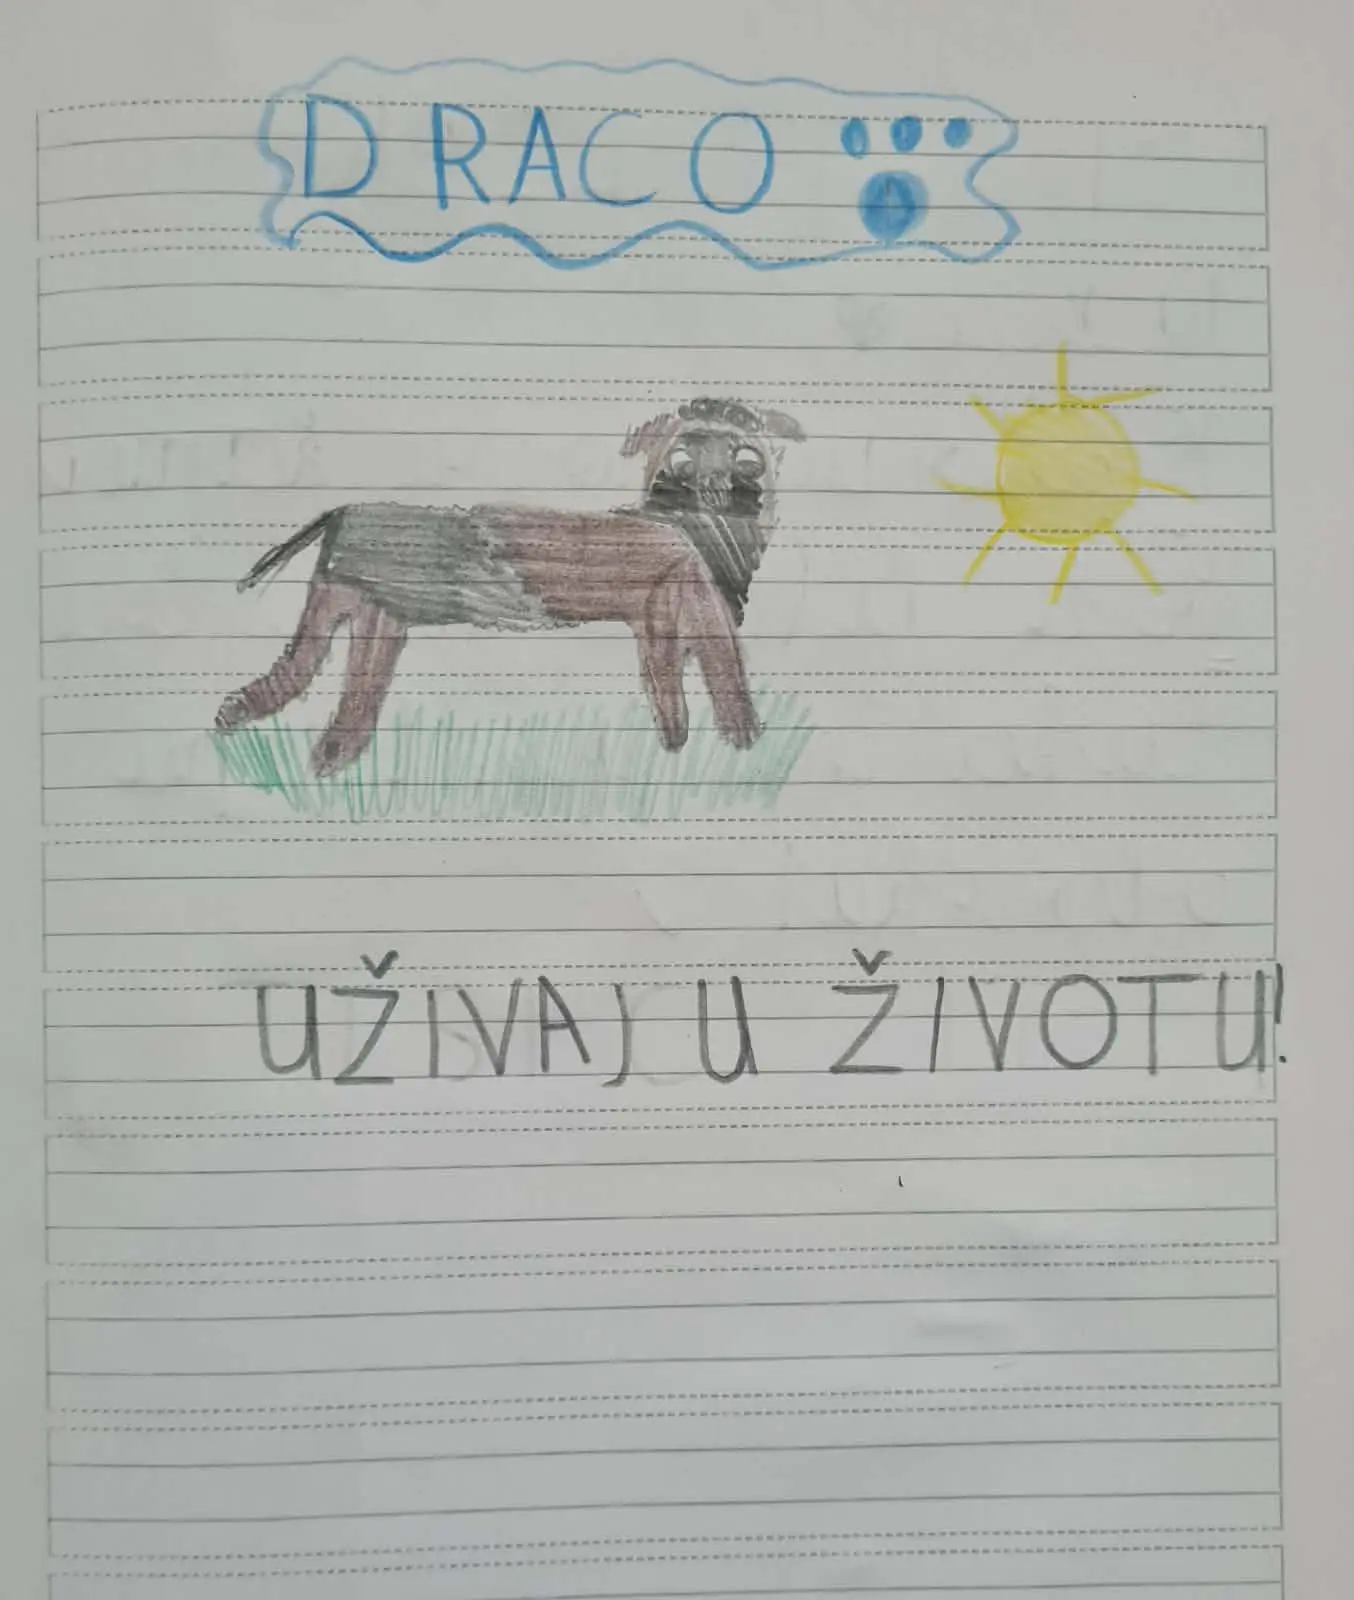 DRACO
UŽIVAJ U ŽIVOTU!